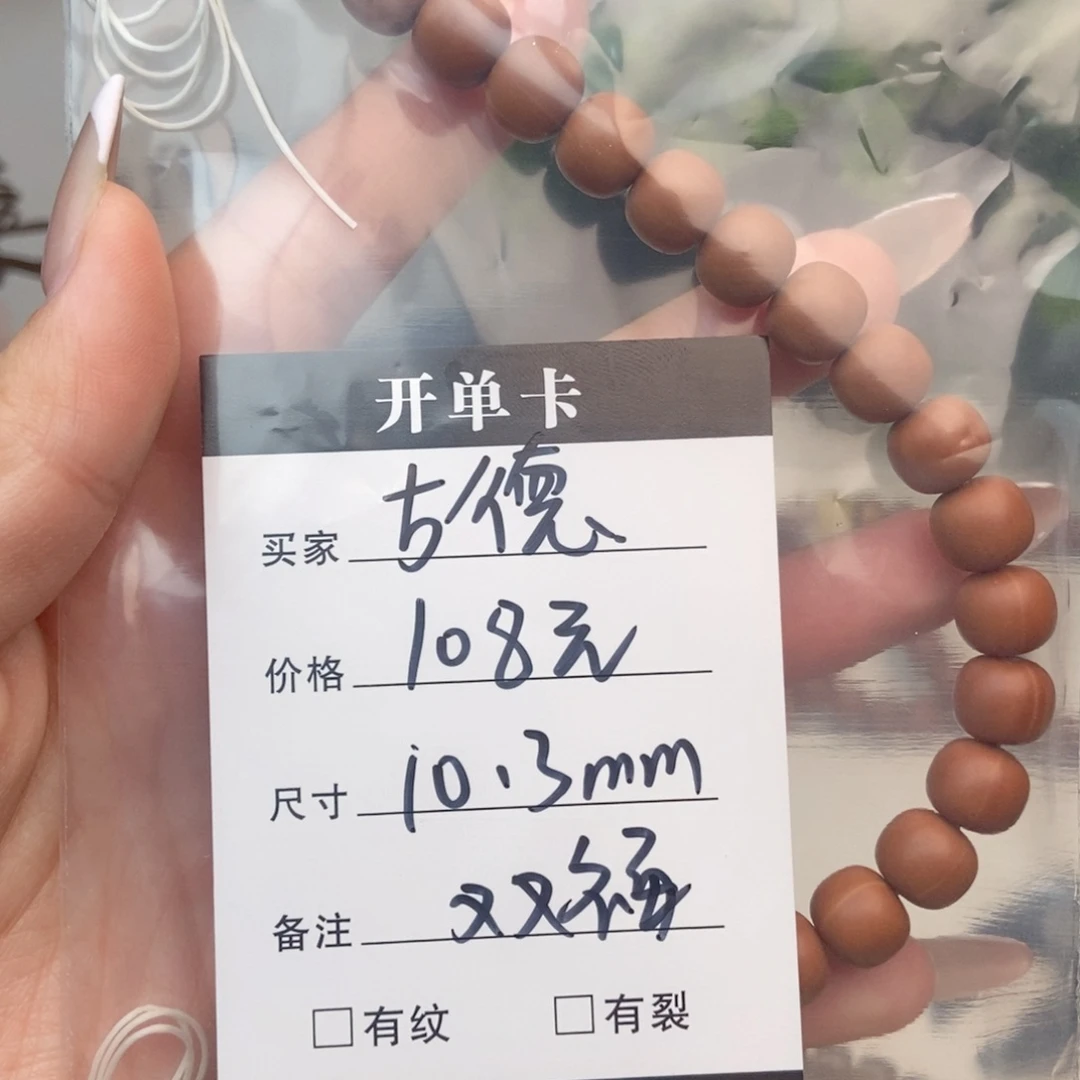 开单卡
买家 古德
价格 108元
尺寸 10.3mm
备注 双福
□有纹 □有裂